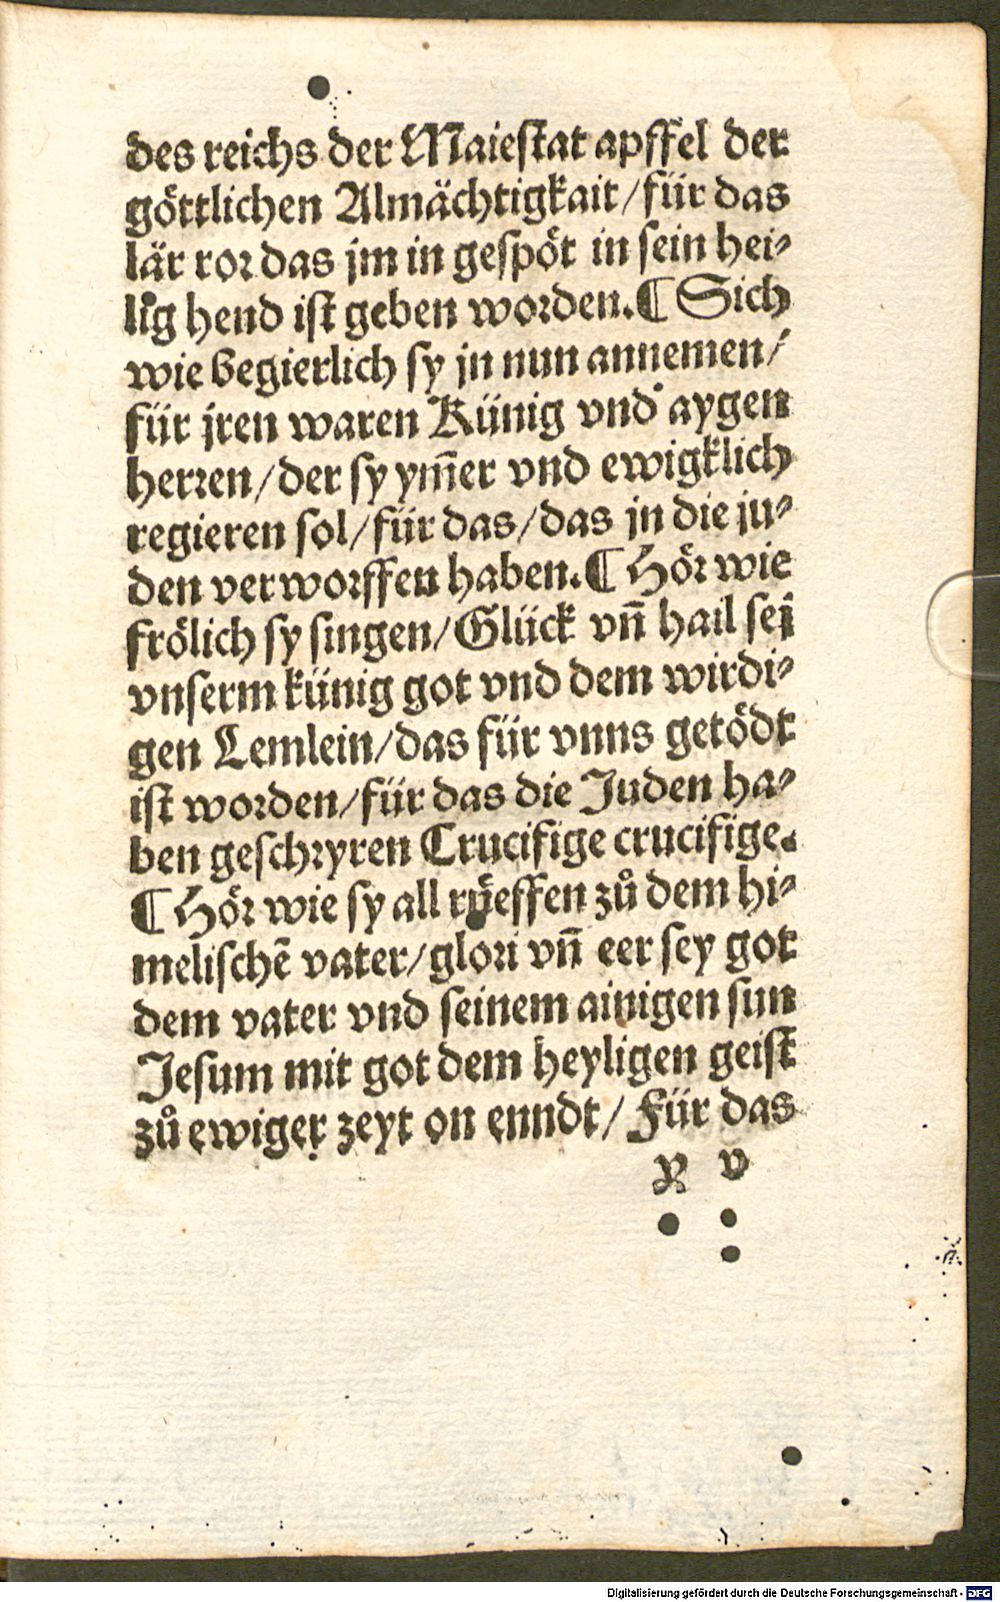 des reichs der Maiestat apffel der
göttlichen Almächtigkait/für das
lär ror das jm in gespöt in sein hei⸗
lig hend ist geben worden.¶ Sich
wie begierlich sy jn nun annemen/
für jren waren Künig vnd aygen
herren/der sy ym̄er vnd ewigklich
regieren sol/für das/das jn die ju⸗
den verworffen haben.¶ Hör wie
frölich sy singen/Glück vn̄ hail sei
vnserm künig got vnd dem wirdi⸗
gen Lemlein/das für vnns getödt
ist worden/für das die Juden ha⸗
ben geschryren Crucifige crucifige.
¶ Hör wie sy all rüeffen zů dem hi⸗
melischē vater/glori vn̄ eer sey got
dem vater vnd seinem ainigen sun
Jesum mit got dem heyligen geist
zů ewiger zeyt on enndt/ Für das
y v
Digitalisierung gefördert durch die Deutsche Forschungsgemeinschaft - DFG